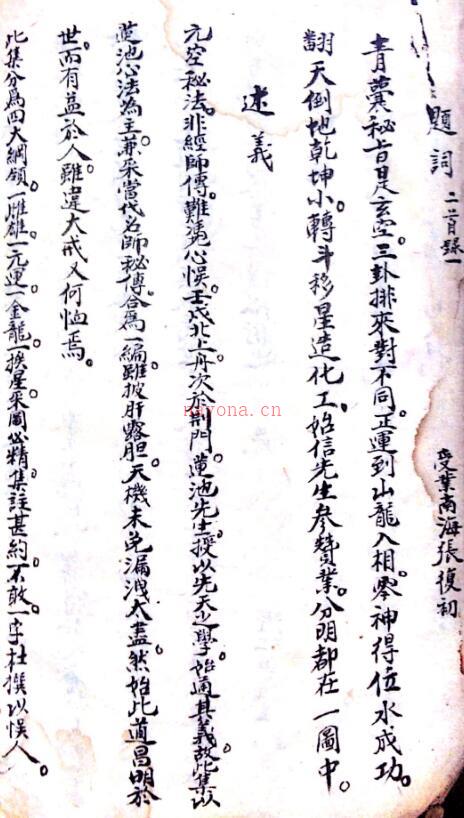 題詞 二首錄一
受業南海張復初
青囊秘旨是玄空。三卦排來對不同。正運到山龍入相。零神得位水成功。
翻天倒地乾坤小。轉斗移星造化工。始信先生參贊業。分明都在一圖中。
述義
元空秘法。非經師傳。難憑心悮。壬戌北上。舟次於荆門。蓮池先生。授以先天之學。始通其義。故此集以
蓮池心法為主。兼采當代名師秘傳。合為一編。雖披肝露胆。天機未免漏洩太盡。然始此道昌明於
世。而有益於人。雖違大戒。又何恤焉。
此集分爲四大綱領。一雌雄。一元運。一金龍。一挨星。采圖必精。集註甚約。不敢一字杜撰以悮人。
nayona.cn